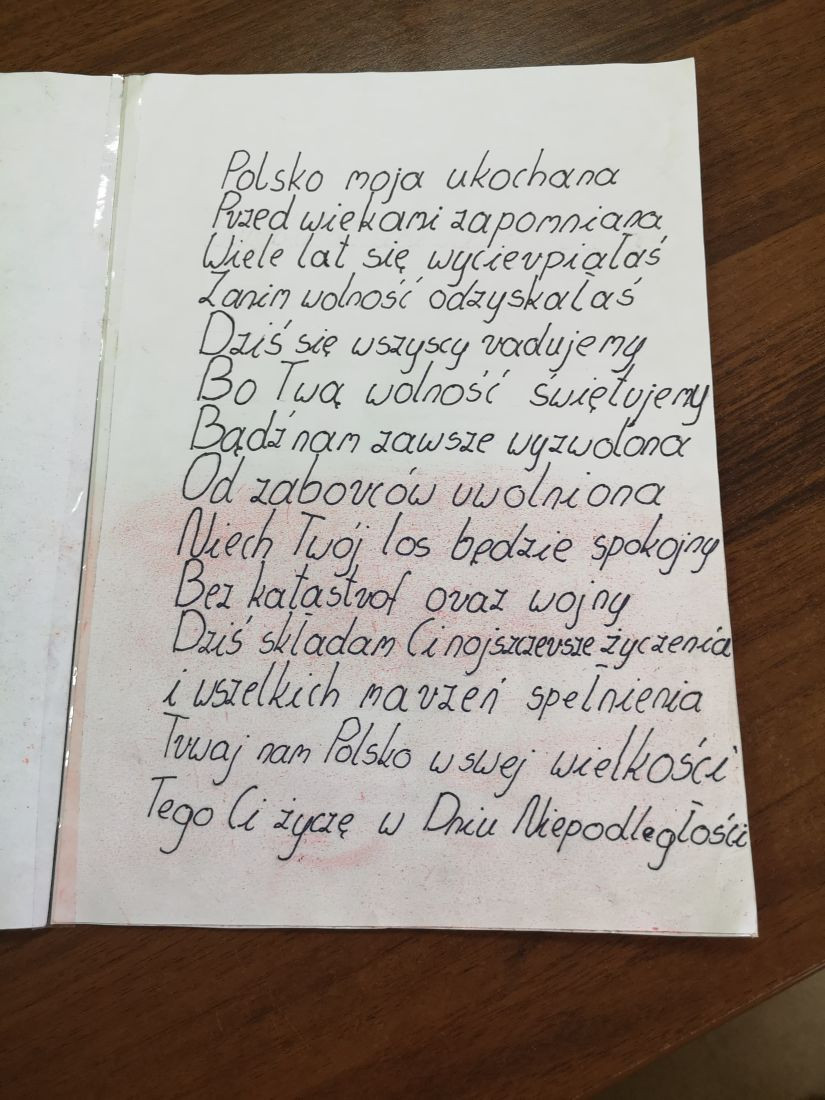 Polsko moja ukochana
Przed wiekami zapomniana
Wiele lat się wycierpiałaś
Zanim wolność odzyskałaś
Dziś się wszyscy radujemy
Bo Twą wolność świętujemy
Bądź nam zawsze wyzwolona
Od zaborców uwolniona
Niech Twój los będzie spokojny
Bez katastrof oraz wojny
Dziś składam Ci najszczersze życzenia
i wszelkich marzeń spełnienia
Trwaj nam Polsko w swej wielkości
Tego Ci życzę w Dniu Niepodległości